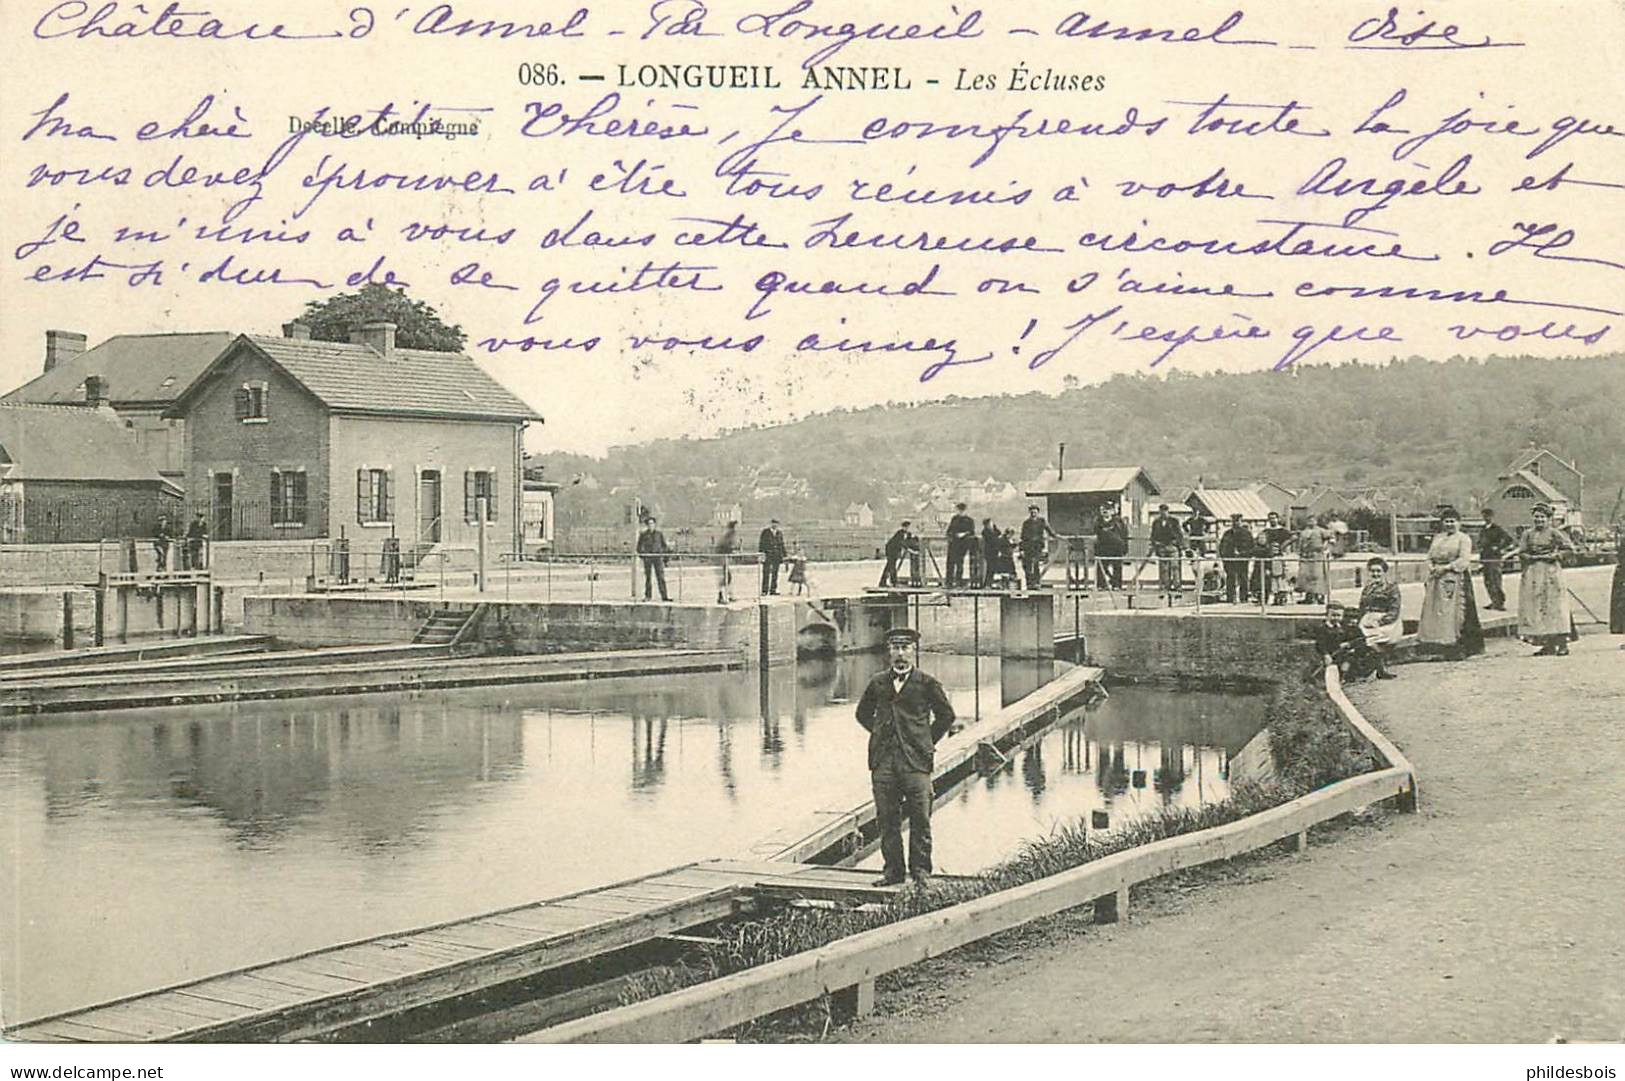 Château d'Annel - Par Longueil - Annel - Oise
086. — LONGUEIL ANNEL - Les Écluses
Ma chère petite Thérèse, Je comprends toute la joie que
Decelle, Compiègne
vous devez éprouver à être tous réunis à votre Angèle et
je m'unis à vous dans cette heureuse circonstance. Il
est si dur de se quitter quand on s'aime comme
vous vous aimez ! J'espère que vous
delcampe.net
phildesbois